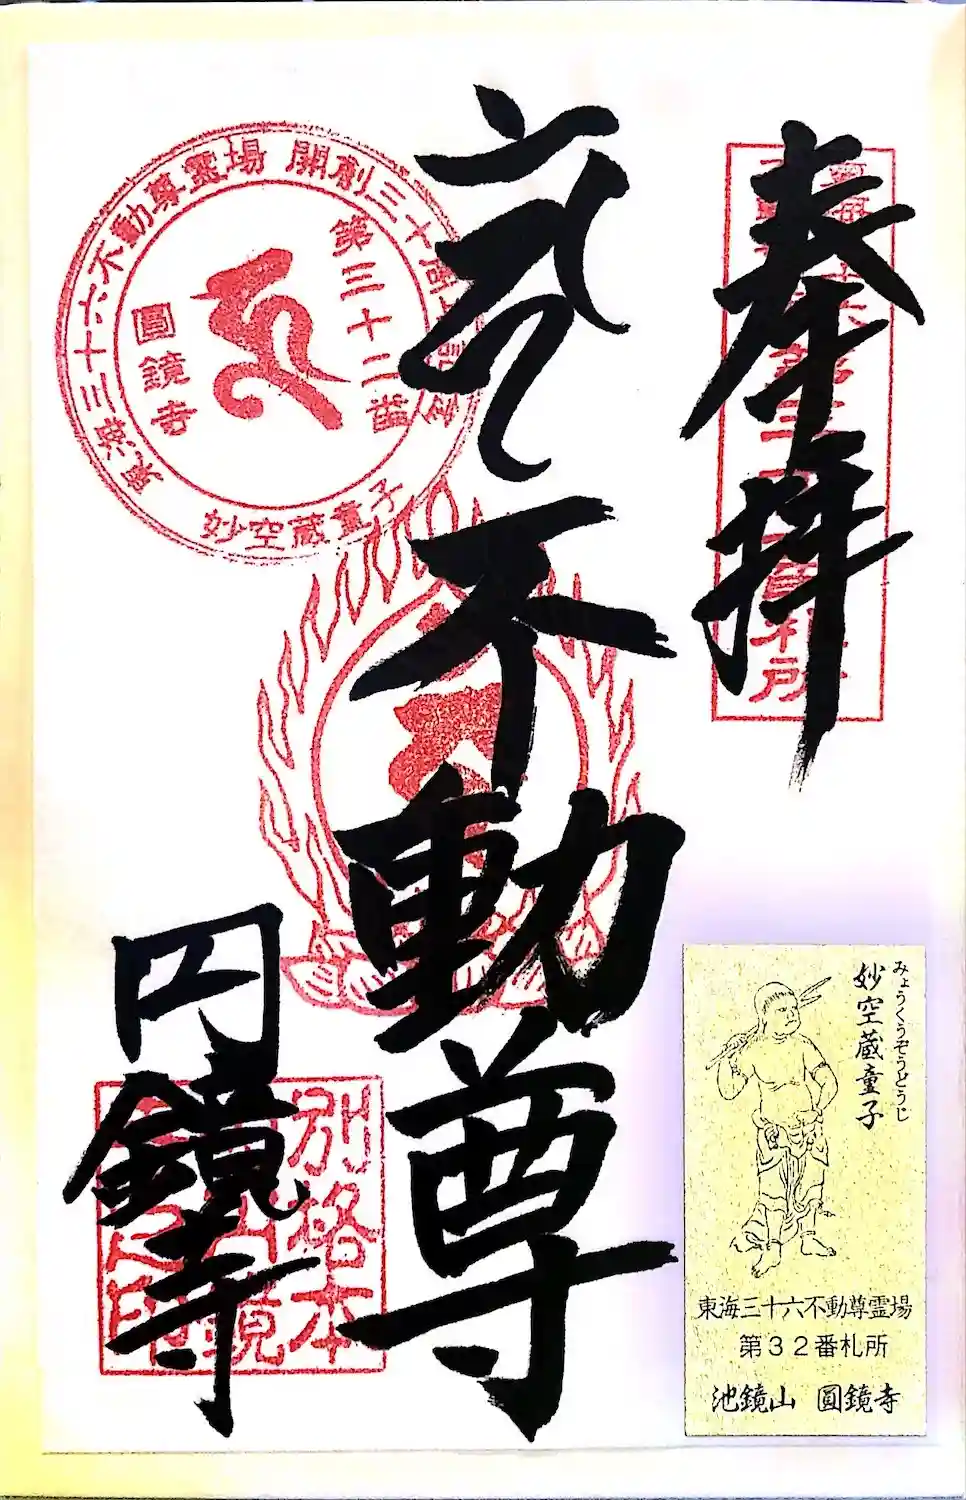 奉拝
不動尊
円鏡寺
東海三十六不動尊霊場 開創三十周
第三十二番
圓鏡寺
妙空蔵童子
別格本
みょうくうぞうどうじ
妙空蔵童子
東海三十六不動尊霊場
第32番札所
池鏡山 圓鏡寺